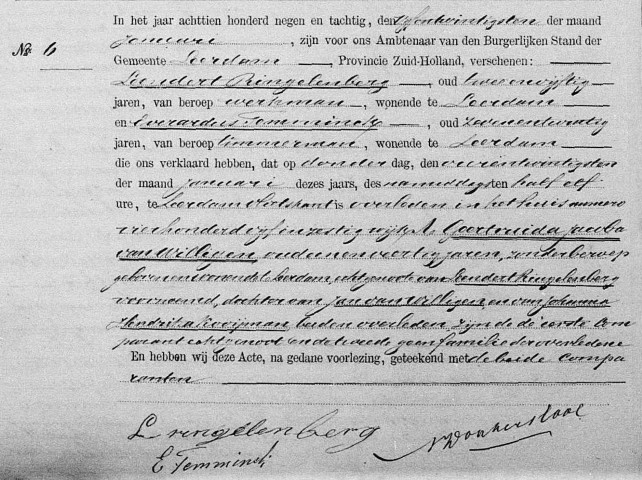 In het jaar achttien honderd negen en tachtig, den vijfentwintigsten der maand
No. 6 januari, zijn voor ons Ambtenaar van den Burgerlijken Stand der
Gemeente Leerdam, Provincie Zuid-Holland, verschenen:
Leendert Ringelenberg, oud twee en vijftig
jaren, van beroep werkman, wonende te Leerdam
en Everardus Temminck, oud zevenentwintig
jaren, van beroep timmerman, wonende te Leerdam
die ons verklaard hebben, dat op donder dag, den vierentwintigsten
der maand januari dezes jaars, des namiddags ten half elf
ure, te Leerdam is overleden in het huis numero
vierhonderd vijf en zestig wijk A Geertruida Jacoba
van Willigen oud een en veertig jaren, zonder beroep
geboren en wonende te Leerdam, echtgenoote van Leendert Ringelenberg
voornoemd, dochter van Jan van Willigen, en van Johanna
Hendrika Kooijman, beiden overleden, zijnde de eerste Com
parant echtgenoot en de tweede geen familie der overledene
En hebben wij deze Acte, na gedane voorlezing, geteekend met de beide Compa
ranten
L ringelenberg
E Temminck
Donkersloot